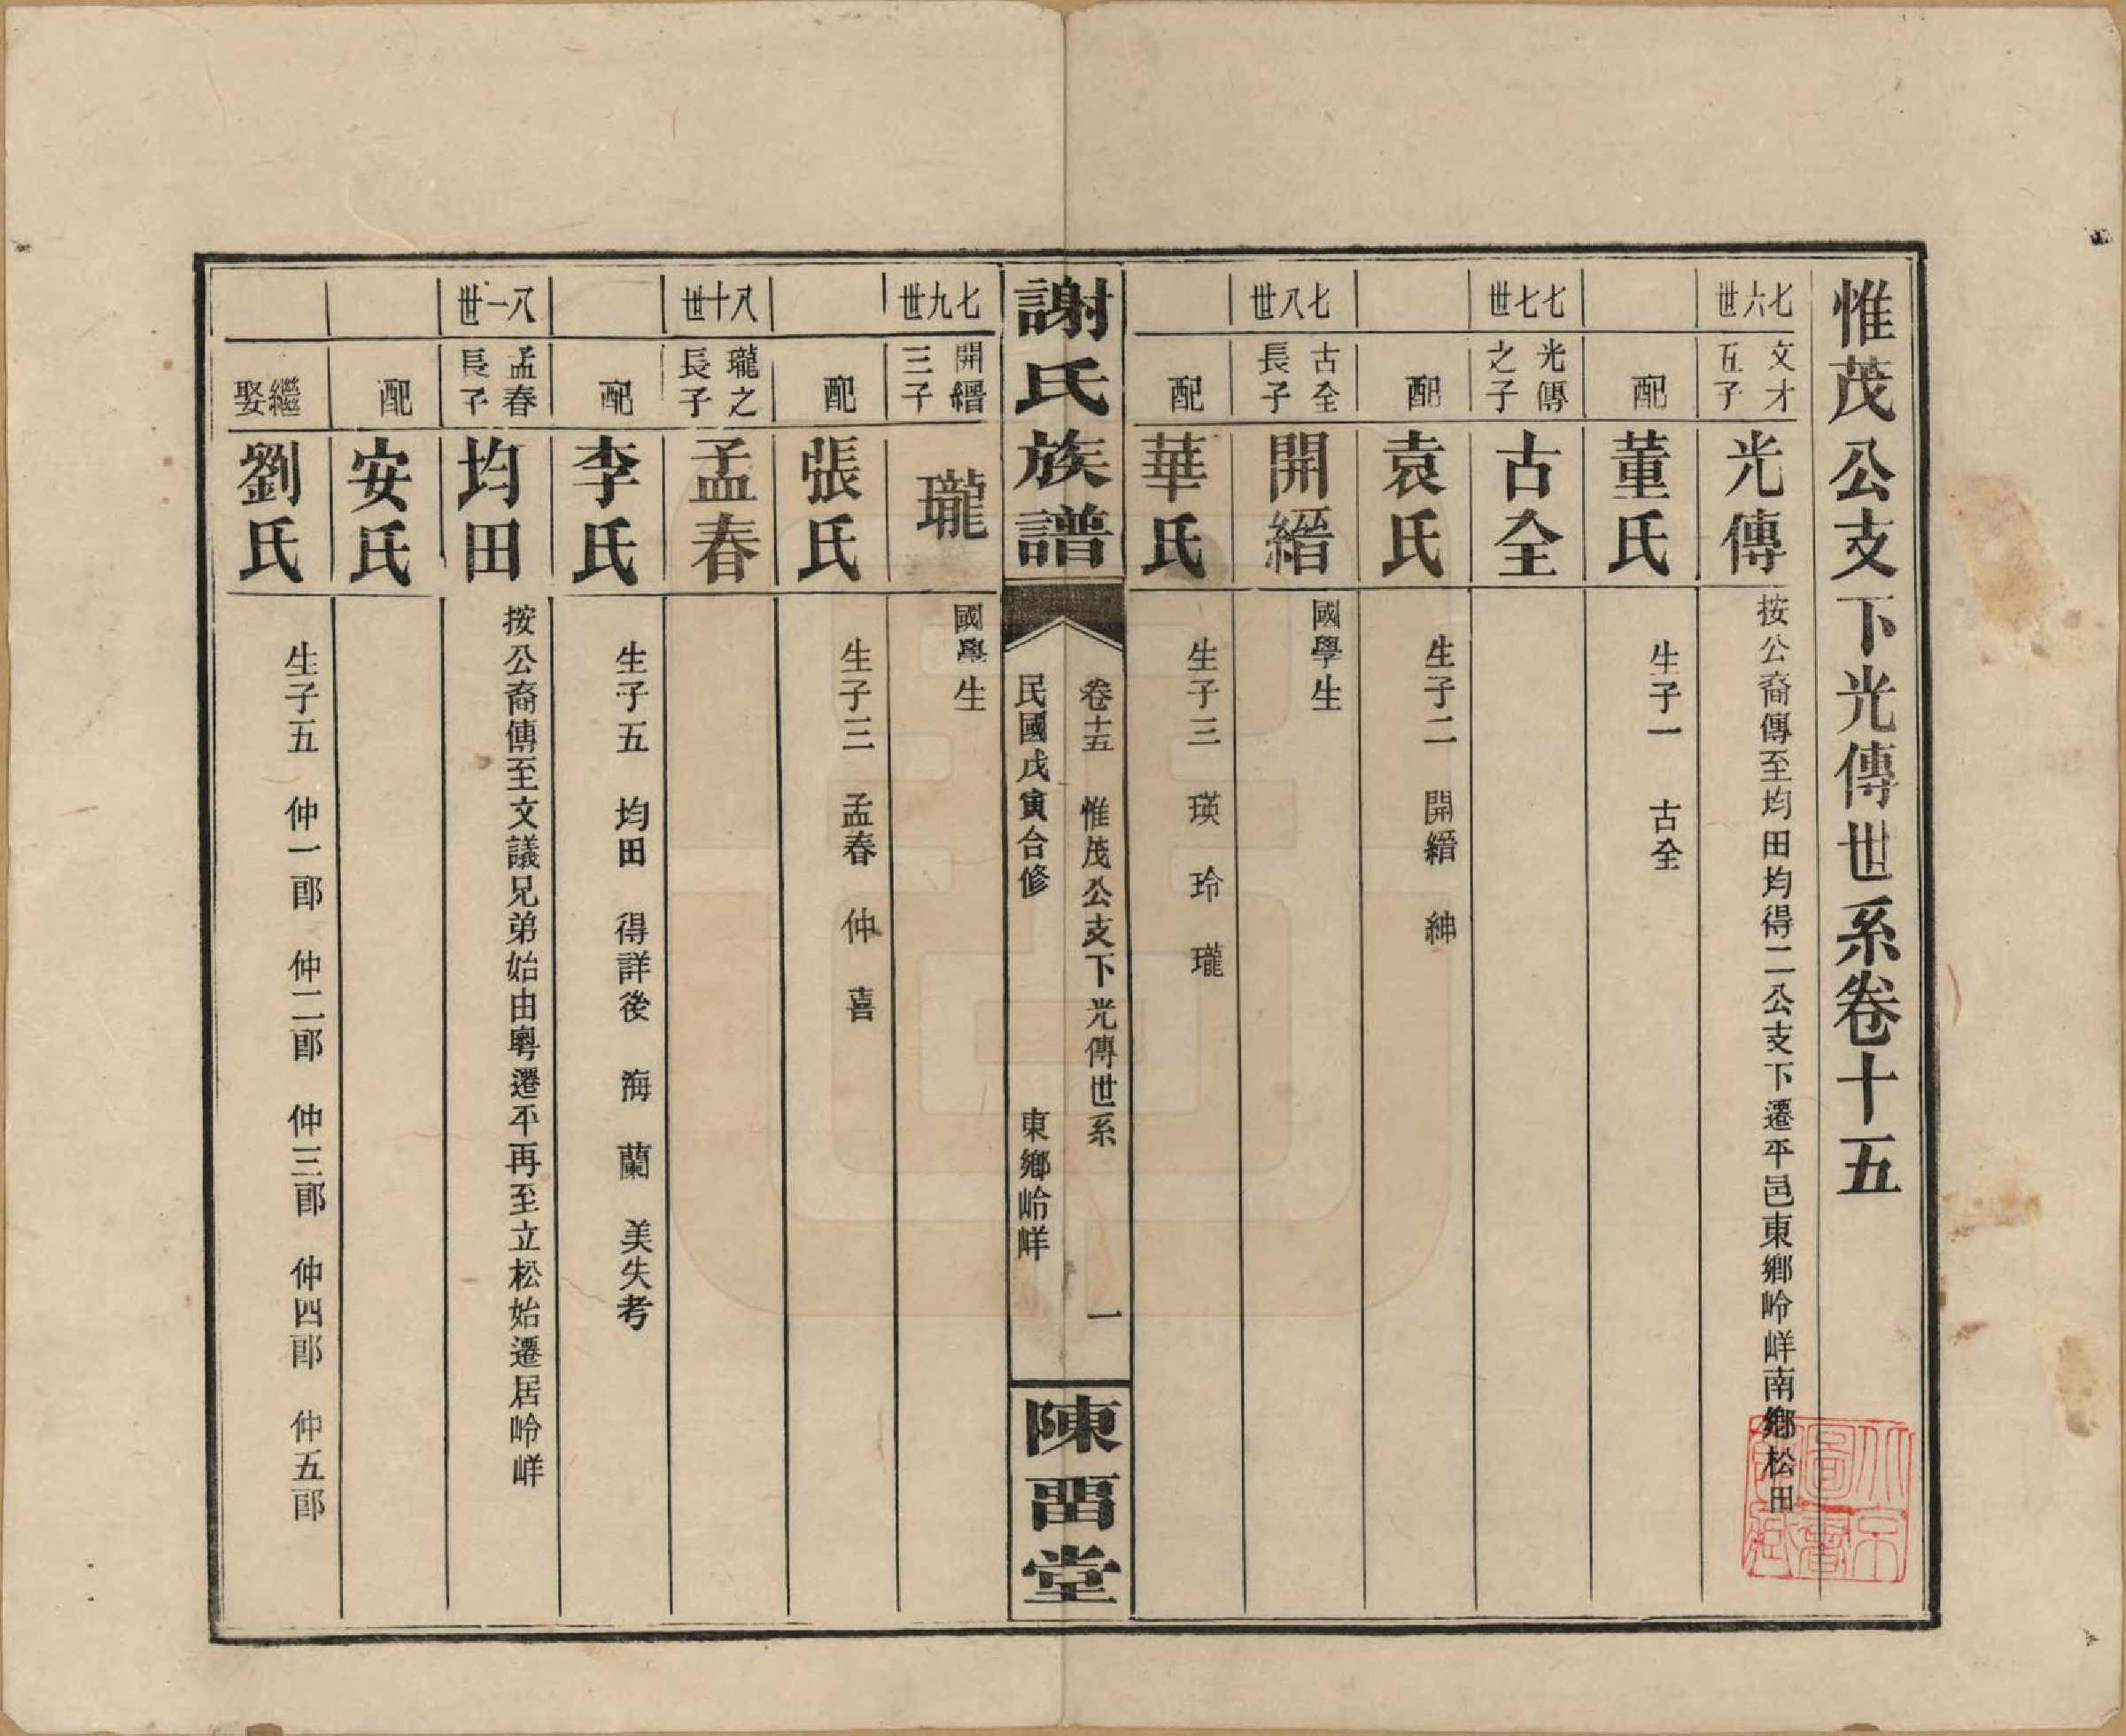 惟茂公支下光傳世系卷十五
七六世
文才五子
光傳
按公裔傳至均田均得二公支下遷平邑東鄉岭嶂南鄉松田
配
董氏
生子一　古全
七七世
光傳之子
古全
配
袁氏
生子二　開縉　紳
七八世
古全長子
開縉
國學生
配
華氏
生子三　瑛　玲　瓏
謝氏族譜
卷十五　惟茂公支下光傳世系　一
民國戊寅合修　東鄉岭嶂
陳畱堂
七九世
開縉三子
瓏
國學生
配
張氏
生子三　孟春　仲　喜
八十世
瓏之長子
孟春
配
李氏
生子五　均田　得詳後　海　蘭　美失考
八一世
孟春長子
均田
按公裔傳至文議兄弟始由粵遷平再至立松始遷居岭嶂
配
安氏
繼娶
劉氏
生子五　仲一郎　仲二郎　仲三郎　仲四郎　仲五郎